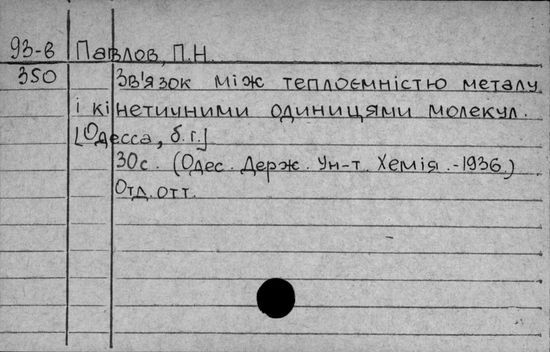 93-в Павлов, П.Н.
350 Зв'язок між теплоємністю металу
і кінетичними одиницями молекул.
[Одесса, б.г.]
30с. (Одес. Держ. Ун-т. Хемія.-1936.)
Отд. отт.